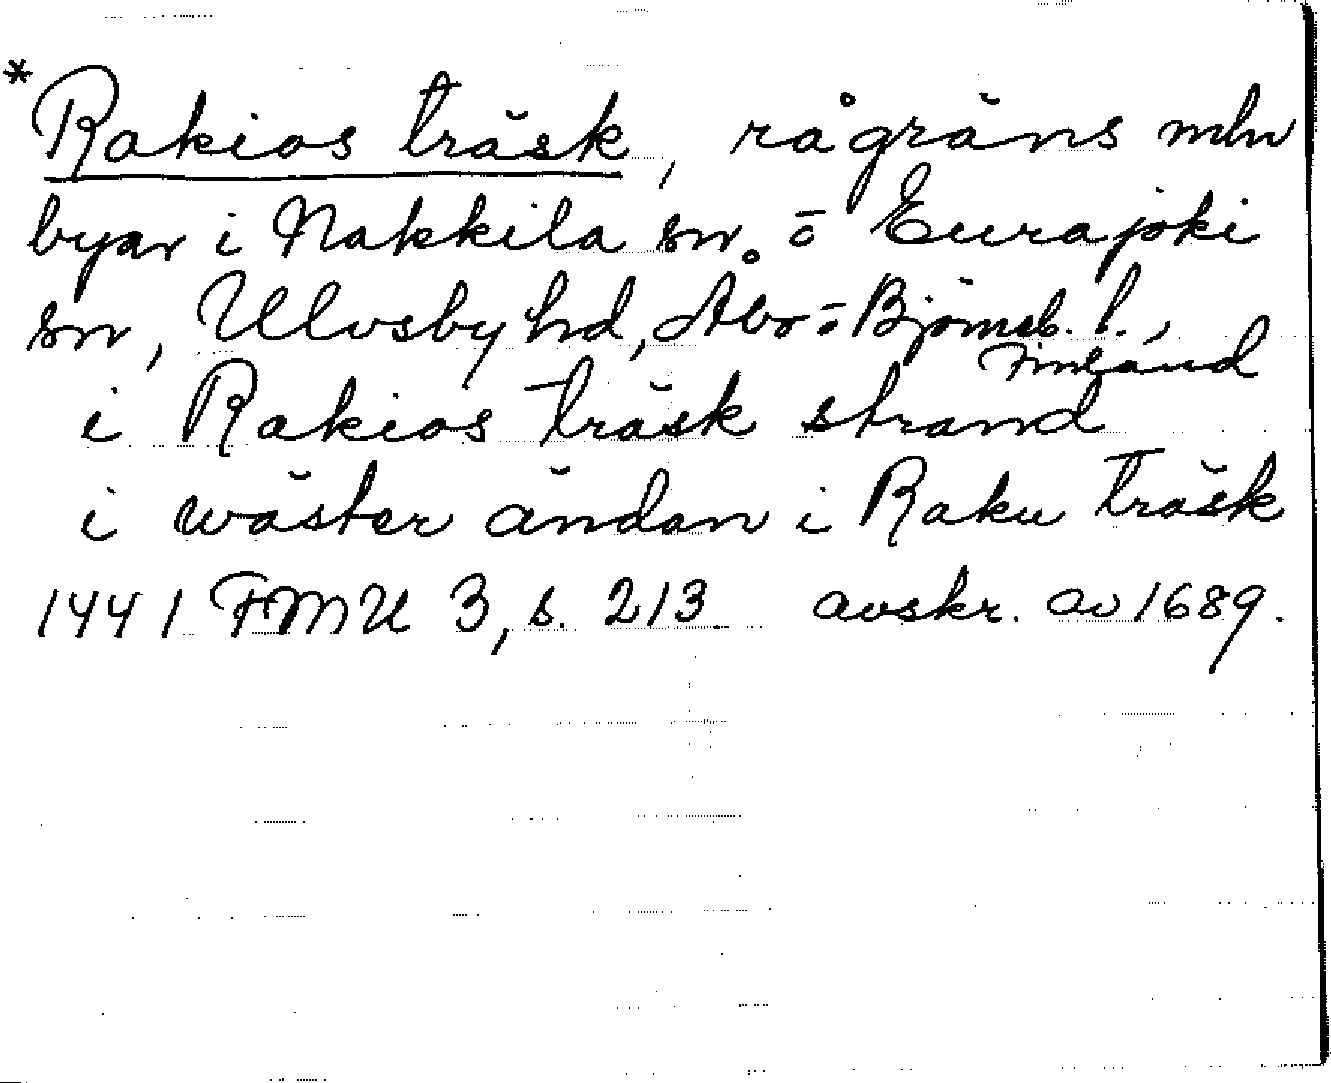 *Rakios träsk, rågräns mln
byar i Nakkila sn. o Eurajoki
sn, Ulvsby hd, Åbo o Björneb. l.,
Finland
i Rakios träsk strand
i wäster ändan i Raku träsk
1441 FMU 3, s. 213. avskr. av 1689.